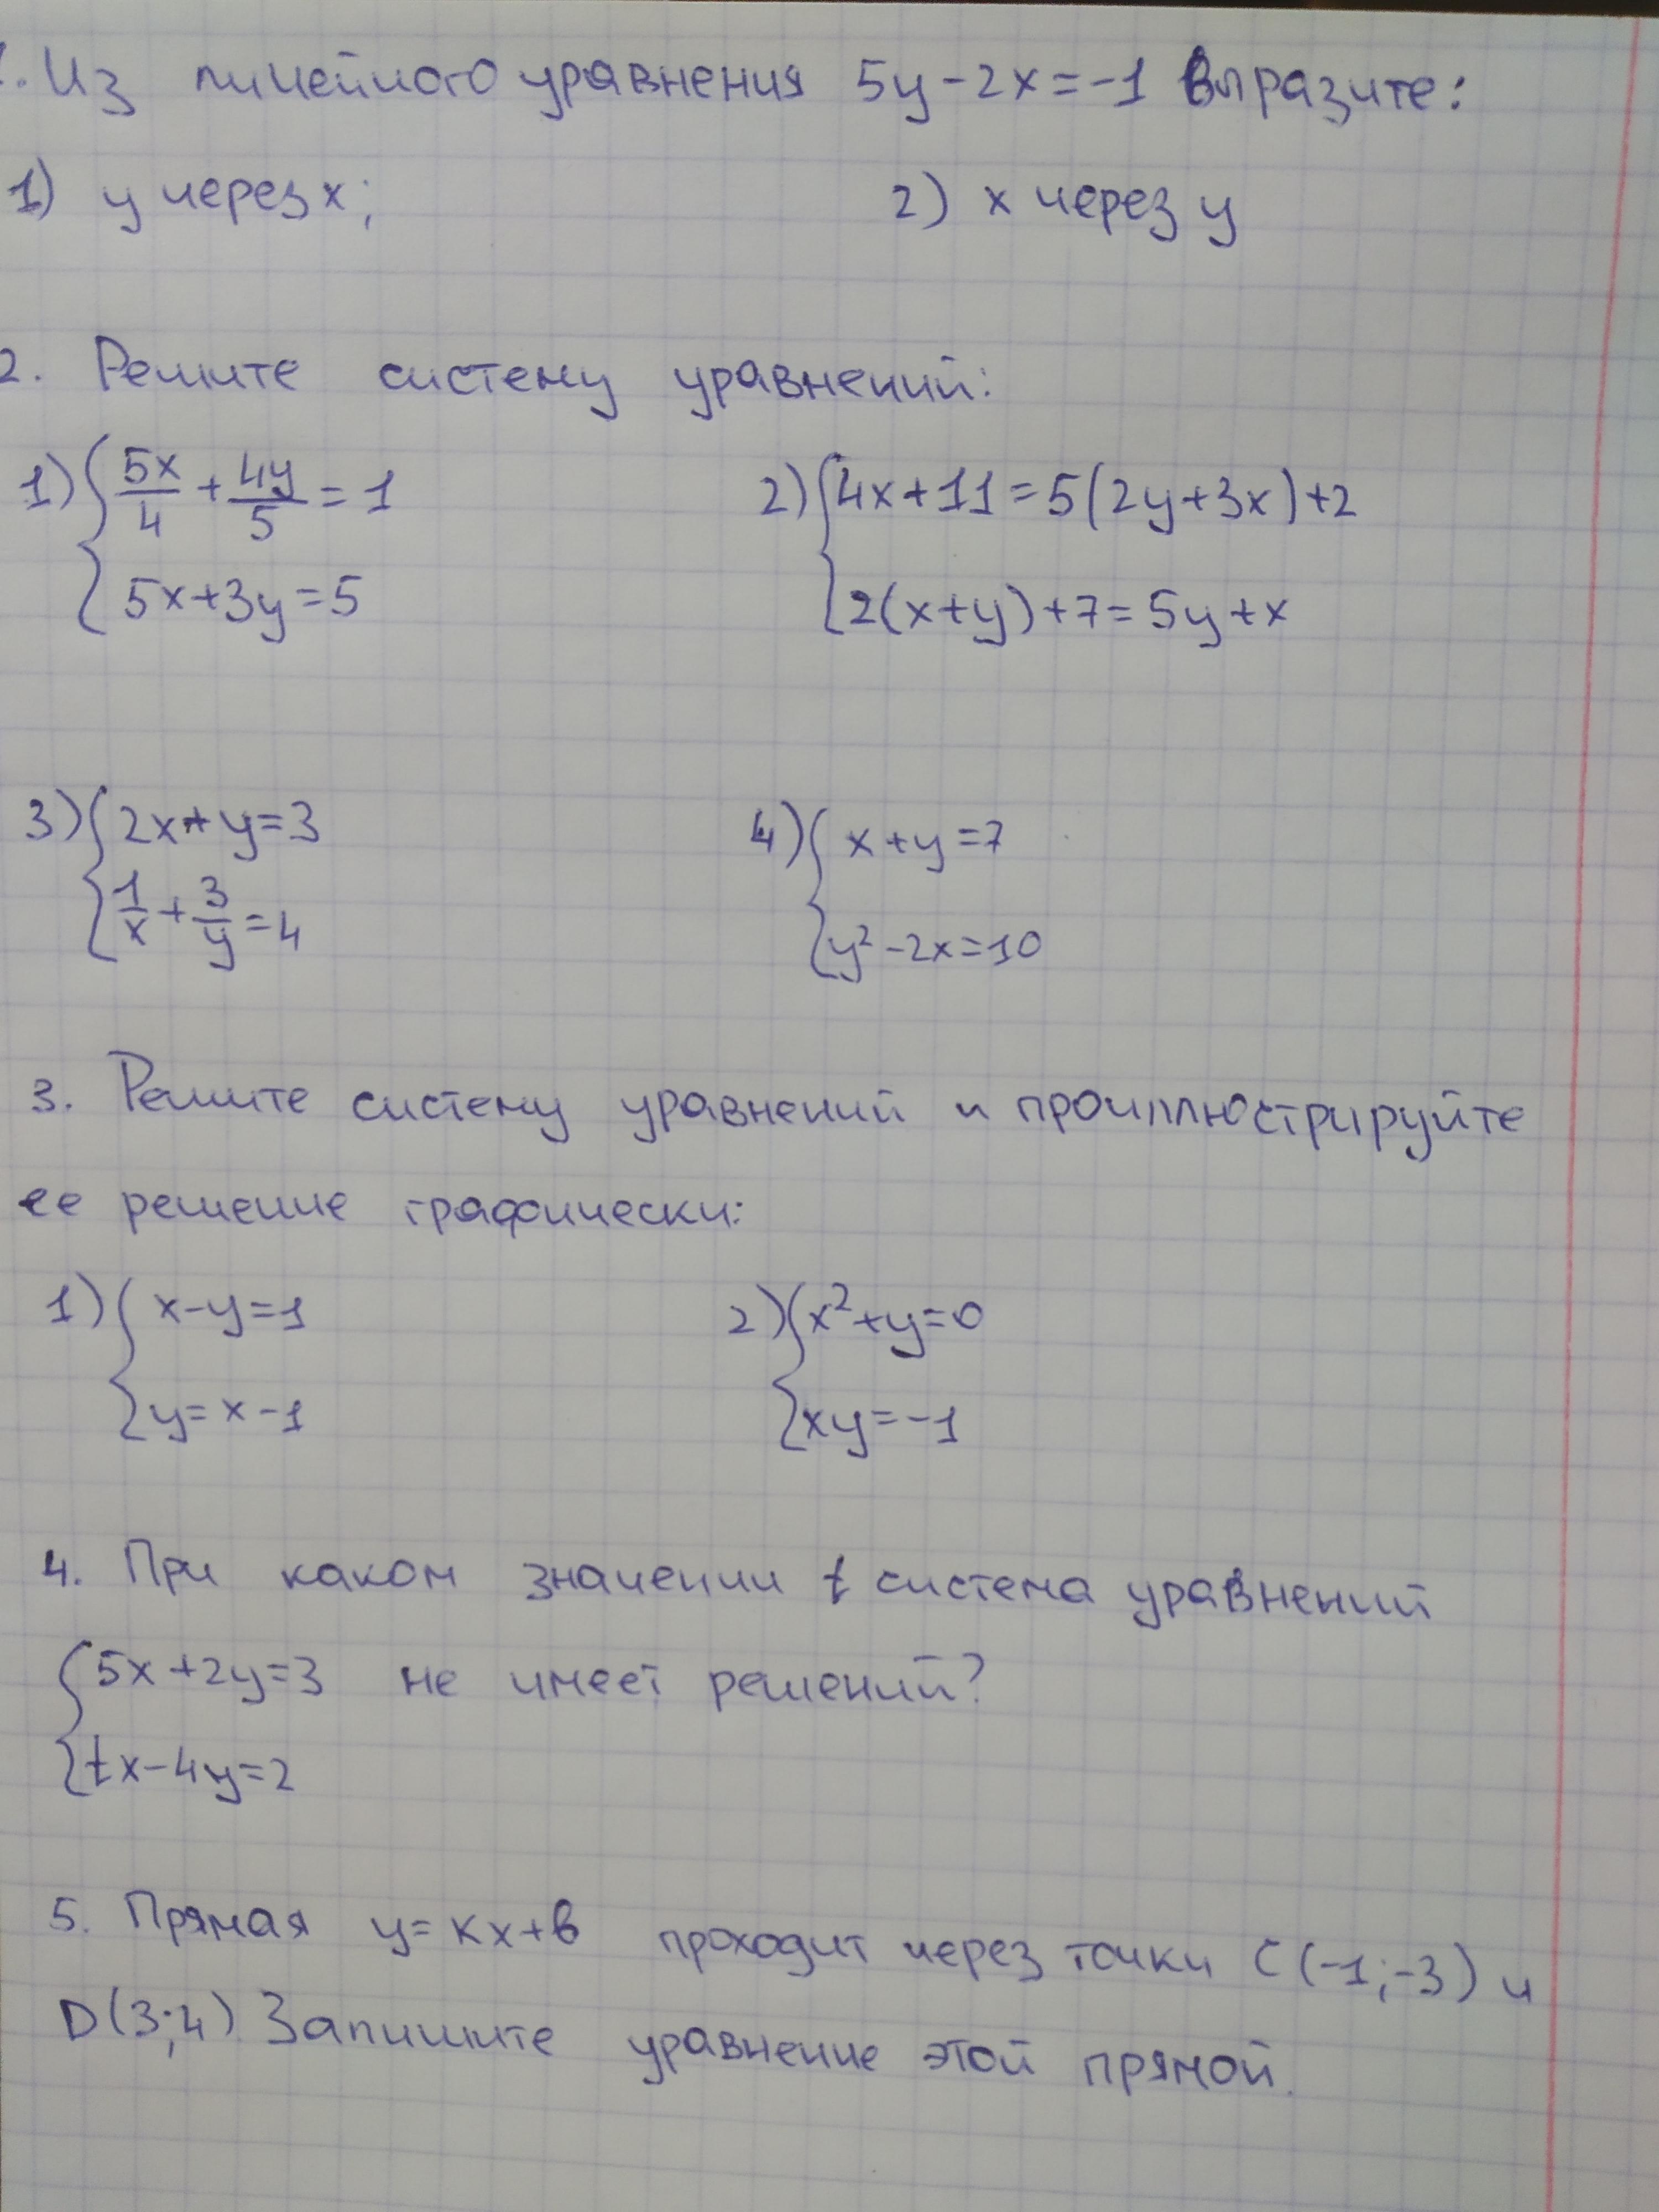 1. Из линейного уравнения 5y-2x=-1 выразите:
1) y через x; 2) x через y
2. Решите систему уравнений:
1) { 5x/4 + 4y/5 = 1 2) { 4x+11=5(2y+3x)+2
{ 5x+3y=5 { 2(x+y)+7=5y+x
3) { 2x+y=3 4) { x+y=7
{ 1/x + 3/y = 4 { y²-2x=10
3. Решите систему уравнений и проиллюстрируйте
ее решение графически:
1) { x-y=1 2) { x²+y=0
{ y=x-1 { xy=-1
4. При каком значении t система уравнений
{ 5x+2y=3 не имеет решений?
{ tx-4y=2
5. Прямая y=kx+b проходит через точки C(-1;-3) и
D(3;4). Запишите уравнение этой прямой.